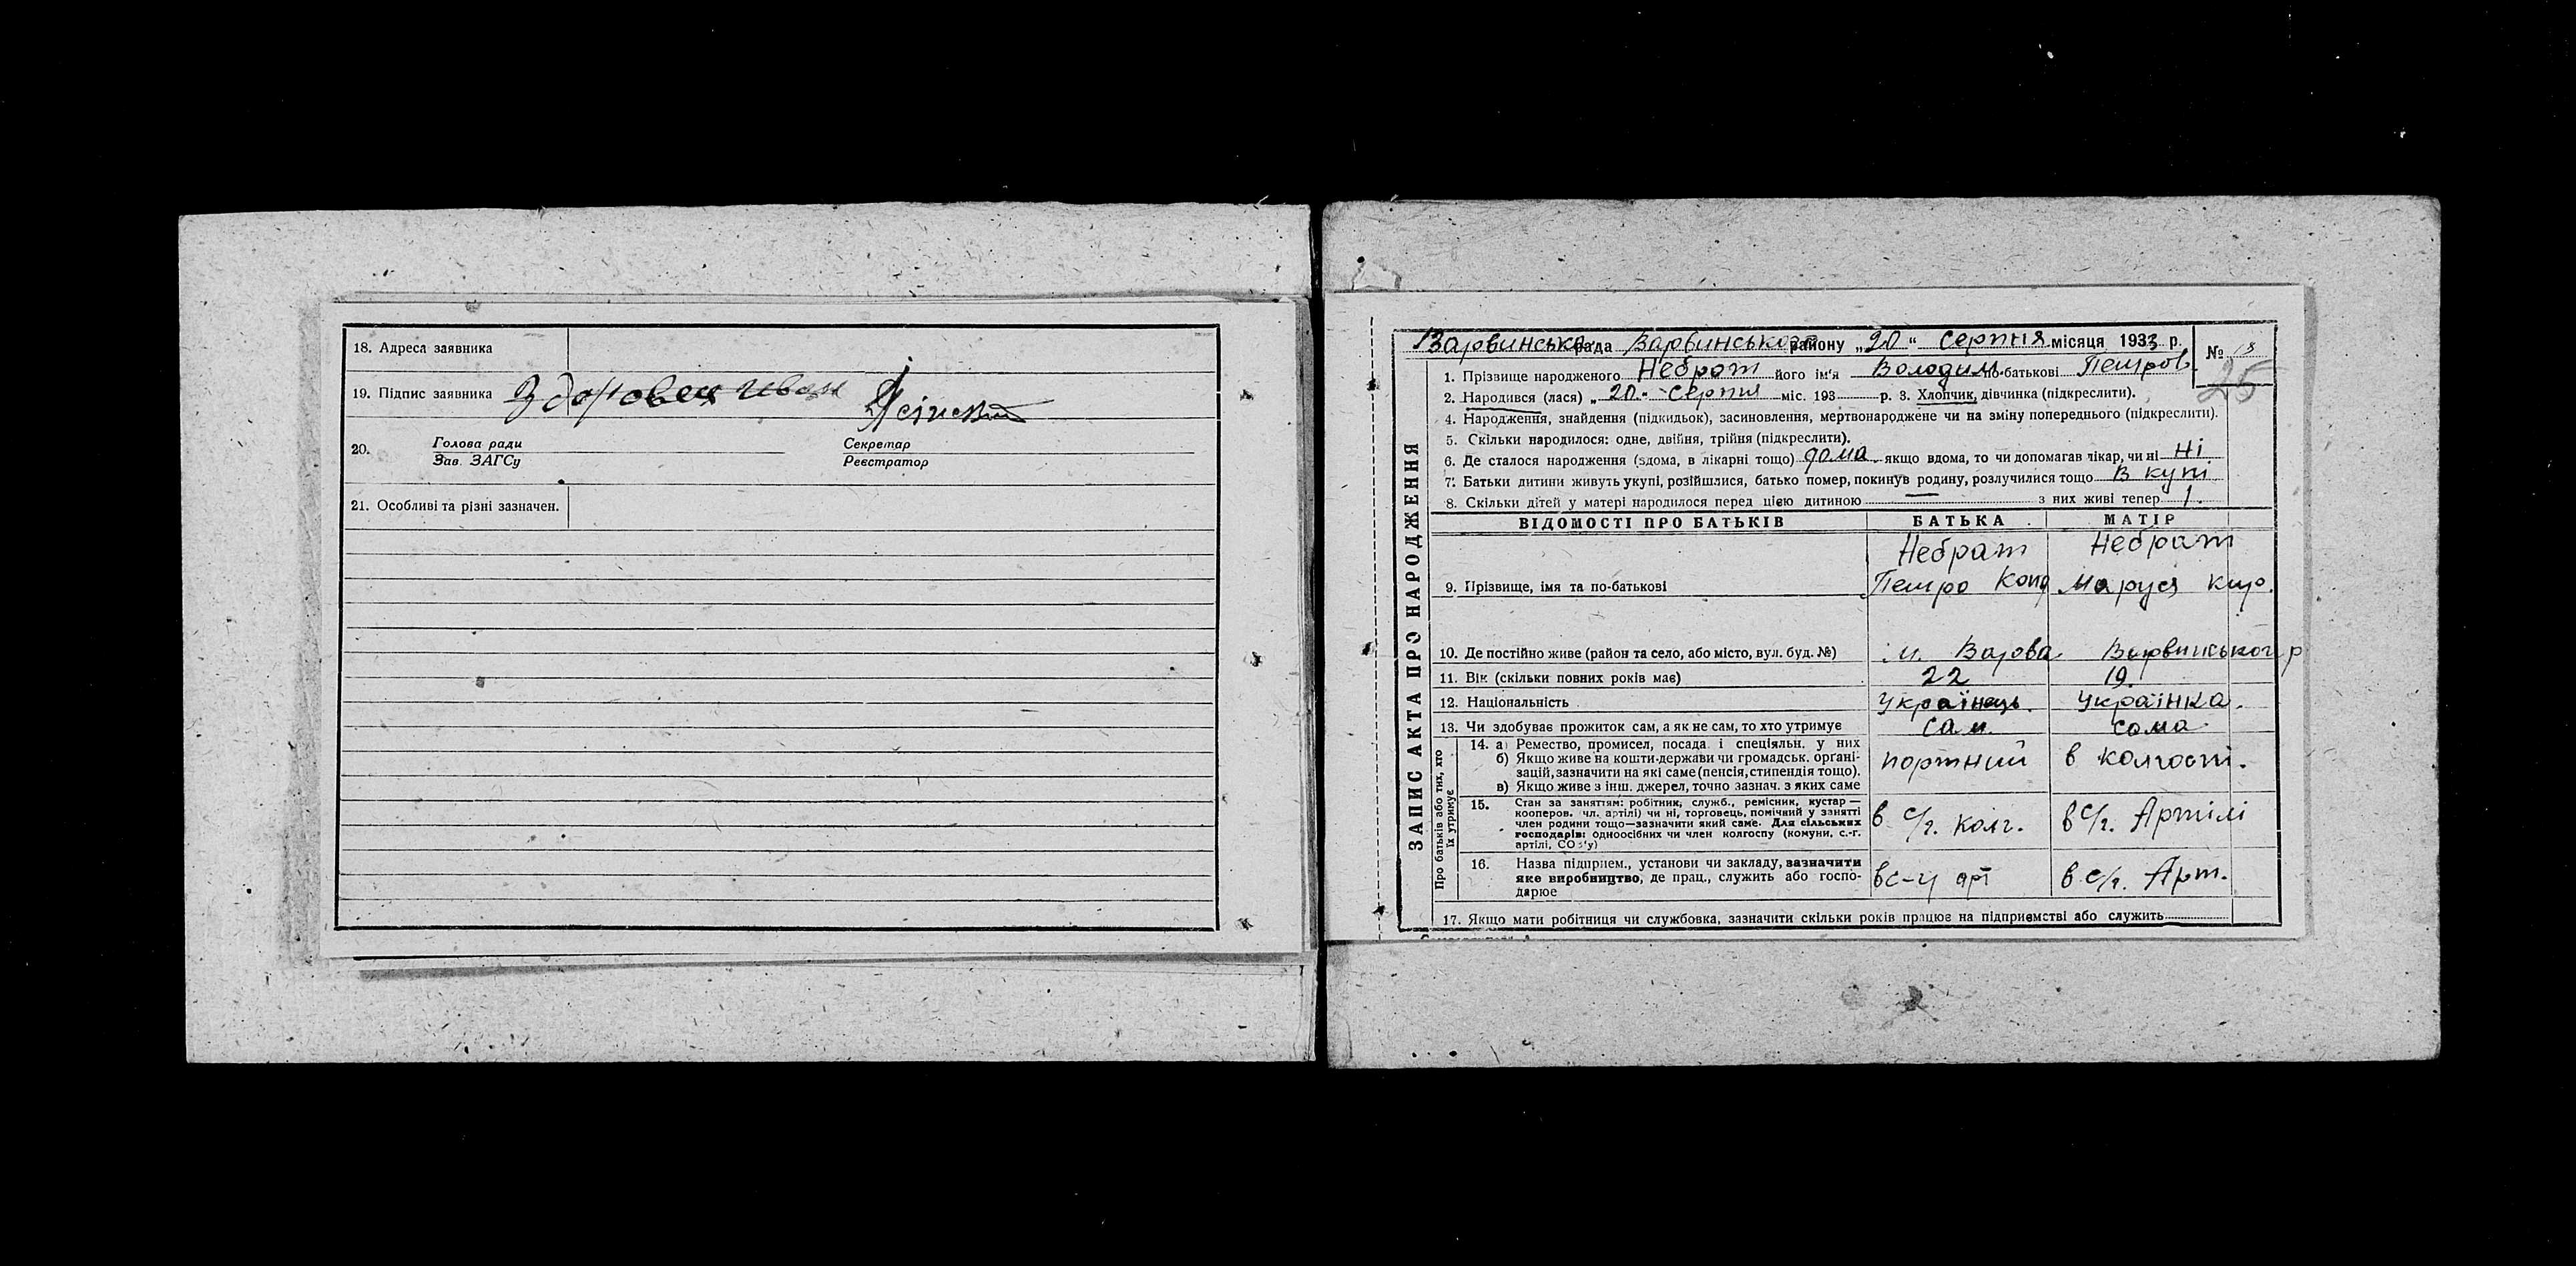 18. Адреса заявника
19. Підпис заявника Здоровец Иван
20. Голова ради Секретар
Зав. ЗАГСу Реєстратор
21. Особливі та різні зазначен.
ЗАПИС АКТА ПРО НАРОДЖЕННЯ
Варвинська рада Варвинського району „20“ серпня місяця 1933 р.
№ 18
25
1. Прізвище народженого Небрат його ім'я Володим. по-батькові Петров.
2. Народився (лася) „20“ Серпня міс. 193 р. 3. Хлопчик, дівчинка (підкреслити).
4. Народження, знайдення (підкидьок), засиновлення, мертвонароджене чи на зміну попереднього (підкреслити).
5. Скільки народилося: одне, двійня, трійня (підкреслити).
6. Де сталося народження (вдома, в лікарні тощо) дома якщо вдома, то чи допомагав лікар, чи ні Ні
7. Батьки дитини живуть укупі, розійшлися, батько помер, покинув родину, розлучилися тощо В купі
8. Скільки дітей у матері народилося перед цією дитиною — з них живі тепер 1.
ВІДОМОСТІ ПРО БАТЬКІВ БАТЬКА МАТІР
Небрат Небрат
9. Прізвище, імя та по-батькові Петро Конд Маруся Кир.
10. Де постійно живе (район та село, або місто, вул. буд. №) м. Варва Варвинського р
11. Вік (скільки повних років має) 22 19.
12. Національність Українець. Українка.
13. Чи здобуває прожиток сам, а як не сам, то хто утримує Сам. Сама
Про батьків або тих, хто їх утримує
14. а) Ремество, промисел, посада і спеціяльн. у них
б) Якщо живе на кошти держави чи громадськ. орґані-
зацій, зазначити на які саме (пенсія, стипендія тощо). портний в колгоспі.
в) Якщо живе з інш. джерел, точно зазнач. з яких саме
15. Стан за заняттям: робітник, служб., ремісник, кустар —
кооперов. чл. артілі) чи ні, торговець, помічний у занятті
член родини тощо—зазначити який саме. Для сільських
господарів: одноосібних чи член колгоспу (комуни, с.-г.
артілі, СОЗ'у) в с/г. колг. в с/г. Артілі
16. Назва підприєм., установи чи закладу, зазначити
яке виробництво, де прац., служить або госпо-
дарює в с-г арт в с/г. Арт.
17. Якщо мати робітниця чи службовка, зазначити скільки років працює на підприємстві або служить